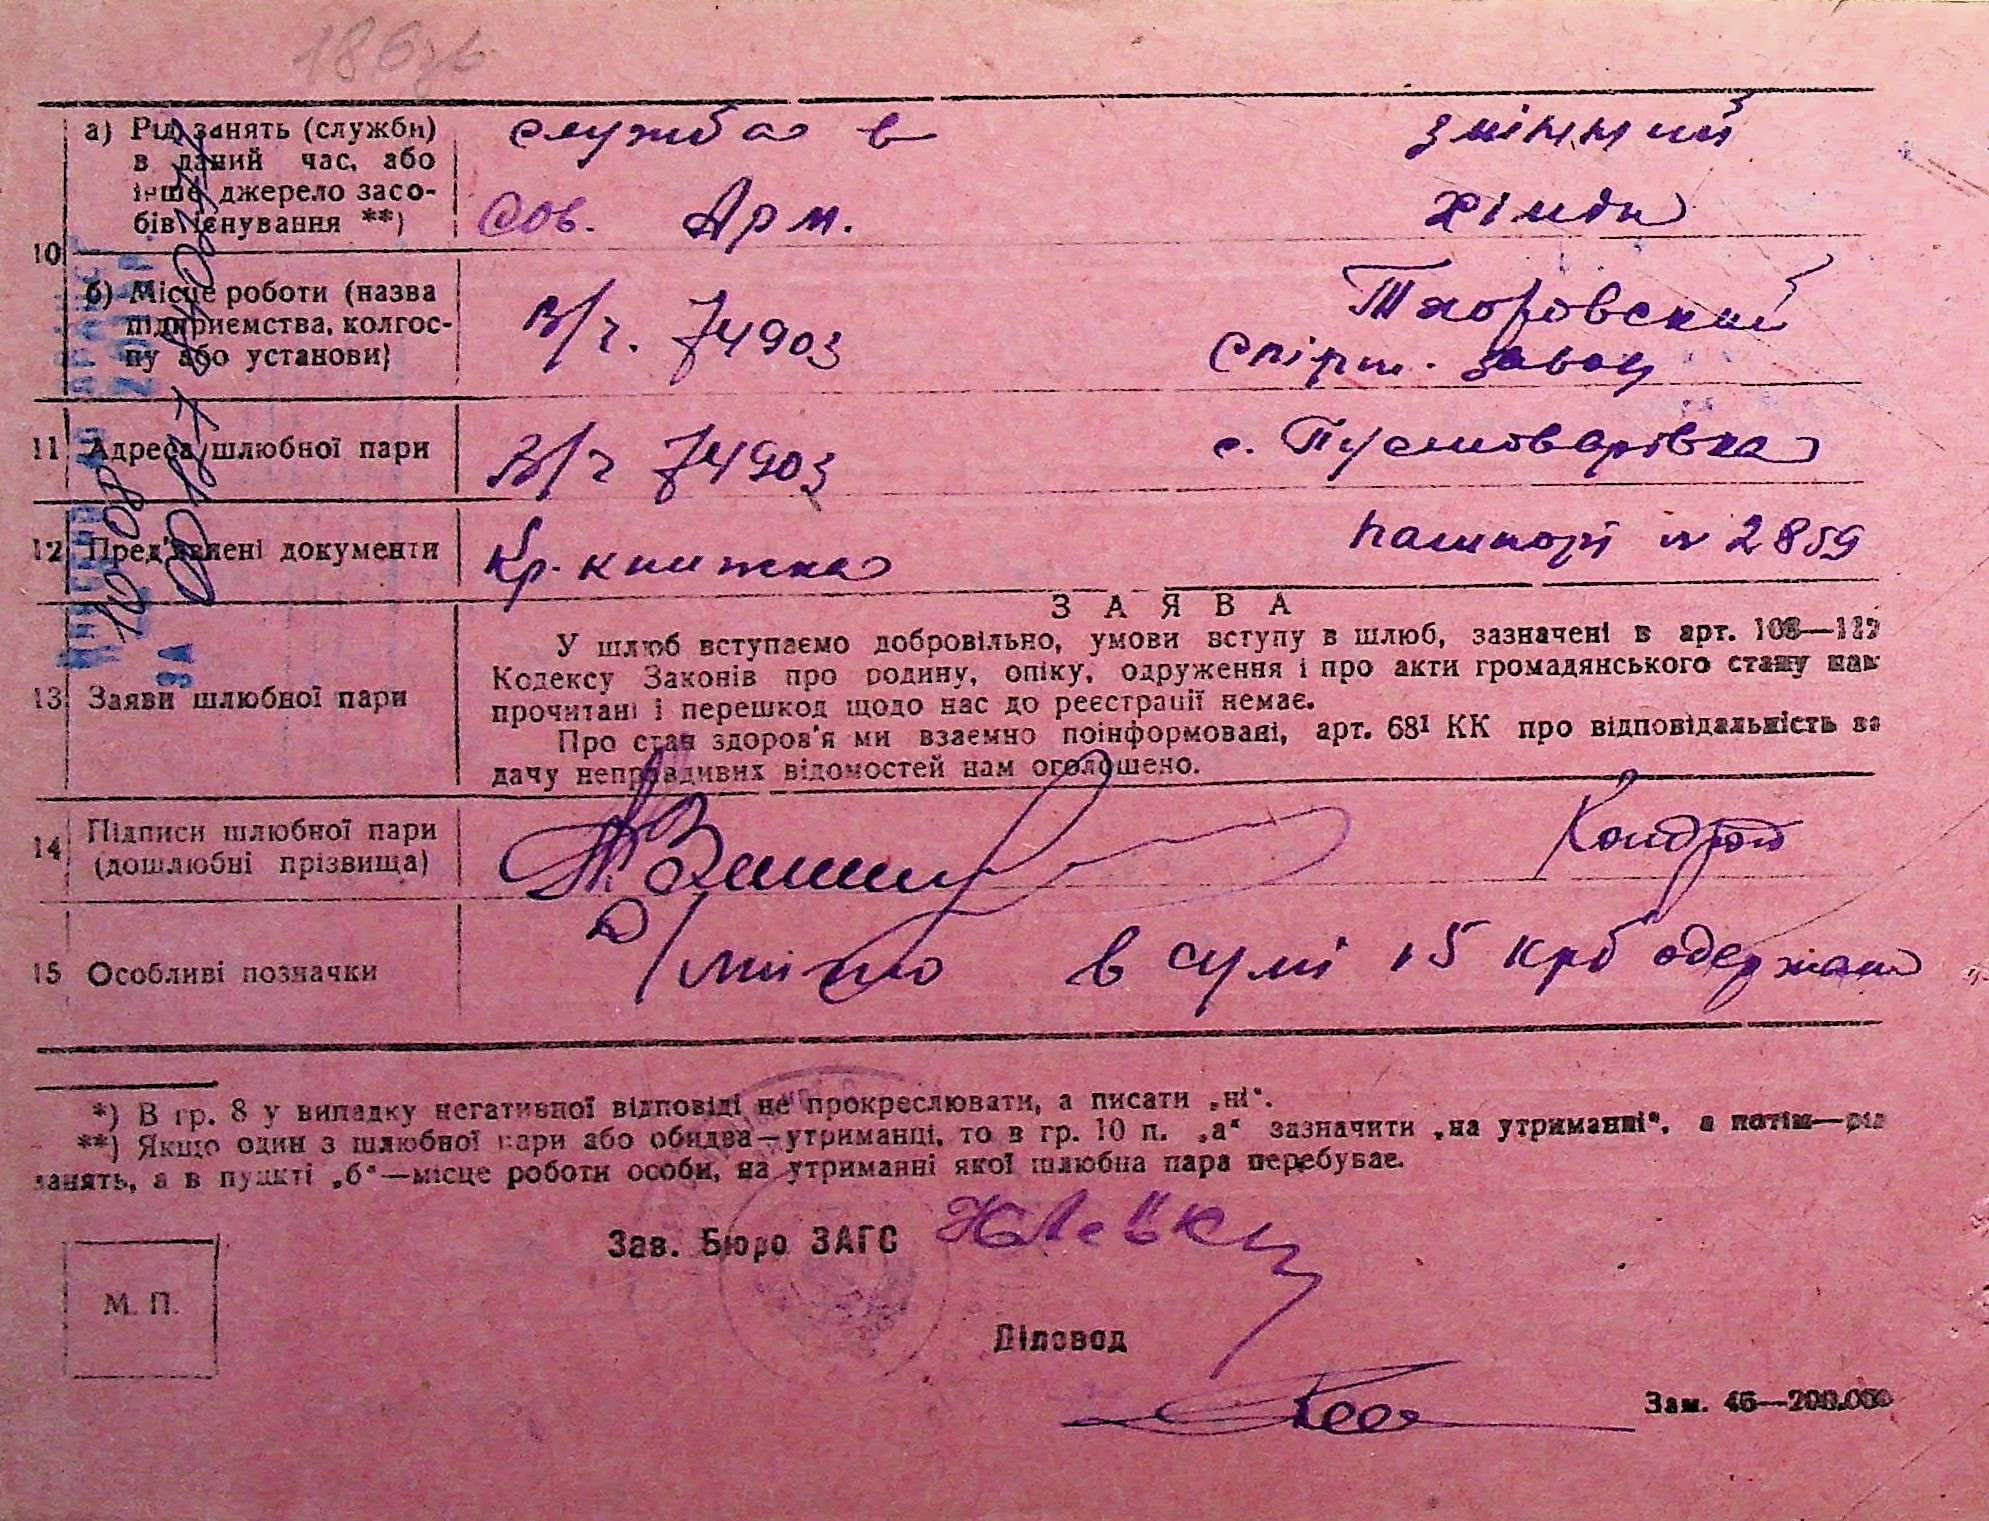 а) Рід занять (служби)
в даний час, або
інше джерело засо-
бів існування **)
служба в
Сов. Арм.
змінний
хімік
10
б) Місце роботи (назва
підприємства, колгос-
пу або установи)
В/ч. 74903
Спірт. завод
11 Адреса шлюбної пари
В/ч 74903
с. Пустоварівка
12 Пред'явлені документи
Кр. книжка
паспорт № 2859
13 Заяви шлюбної пари
ЗАЯВА
У шлюб вступаємо добровільно, умови вступу в шлюб, зазначені в арт.
Кодексу Законів про родину, опіку, одруження і про акти громадянського стану нам
прочитані і перешкод щодо нас до реєстрації немає.
Про стан здоров'я ми взаємно поінформовані, арт. 68¹ КК про відповідальність за
дачу неправдивих відомостей нам оголошено.
14 Підписи шлюбної пари
(дошлюбні прізвища)
15 Особливі позначки
в сумі 15 крб одержано
*) В гр. 8 у випадку негативної відповіді не прокреслювати, а писати „ні“.
**) Якщо один з шлюбної пари або обидва—утриманці, то в гр. 10 п. „а“ зазначити „на утриманні“, а потім—рід
занять, а в пункті „б“—місце роботи особи, на утриманні якої шлюбна пара перебуває.
Зав. Бюро ЗАГС
М. П.
Діловод
Зам. 45—200.000